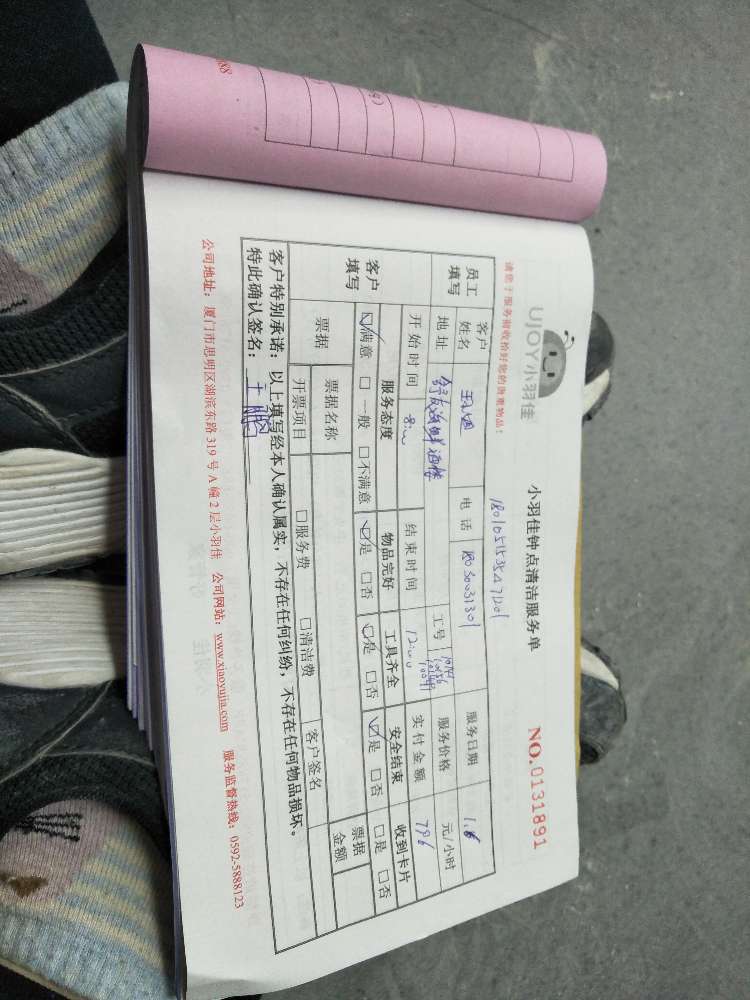 UJOY小羽佳
小羽佳钟点清洁服务单
NO.0131891
请您于服务前收检好您的贵重物品!
1801051535471201
员工填写
客户姓名 电话 18030031301 服务日期 1.6
地址 海鲜酒楼 工号 服务价格 元/小时
开始时间 结束时间 实付金额 796
客户填写
服务态度 物品完好 工具齐全 安全结束 收到卡片
☑满意 □一般 □不满意 ☑是 □否 ☑是 □否 ☑是 □否 □是 □否
票据 票据名称 □服务费 □清洁费 客户签名 票据金额
开票项目
客户特别承诺:以上填写经本人确认属实,不存在任何纠纷,不存在任何物品损坏。
特此确认签名:
公司地址:厦门市思明区湖滨东路319号A幢2层小羽佳 公司网站:www.xiaoyujia.com 服务监督热线:0592-5888123